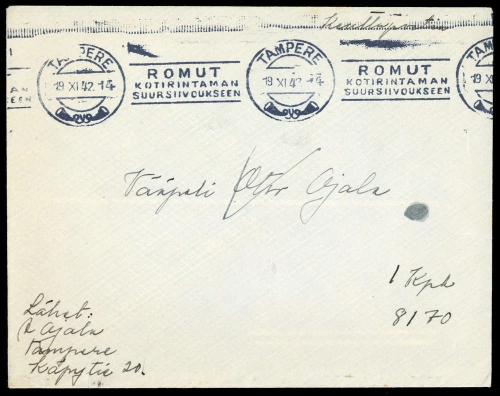 Kenttäpostia
TAMPERE
19 XI 42. 14
ROMUT
KOTIRINTAMAN
SUURSIIVOUKSEEN
TAMPERE
19 XI 42. 14
ROMUT
KOTIRINTAMAN
SUURSIIVOUKSEEN
Vääpeli Otto Ojala
1 Kpk
8170
Lähet:
Ojala
Tampere
Käpytie 20.